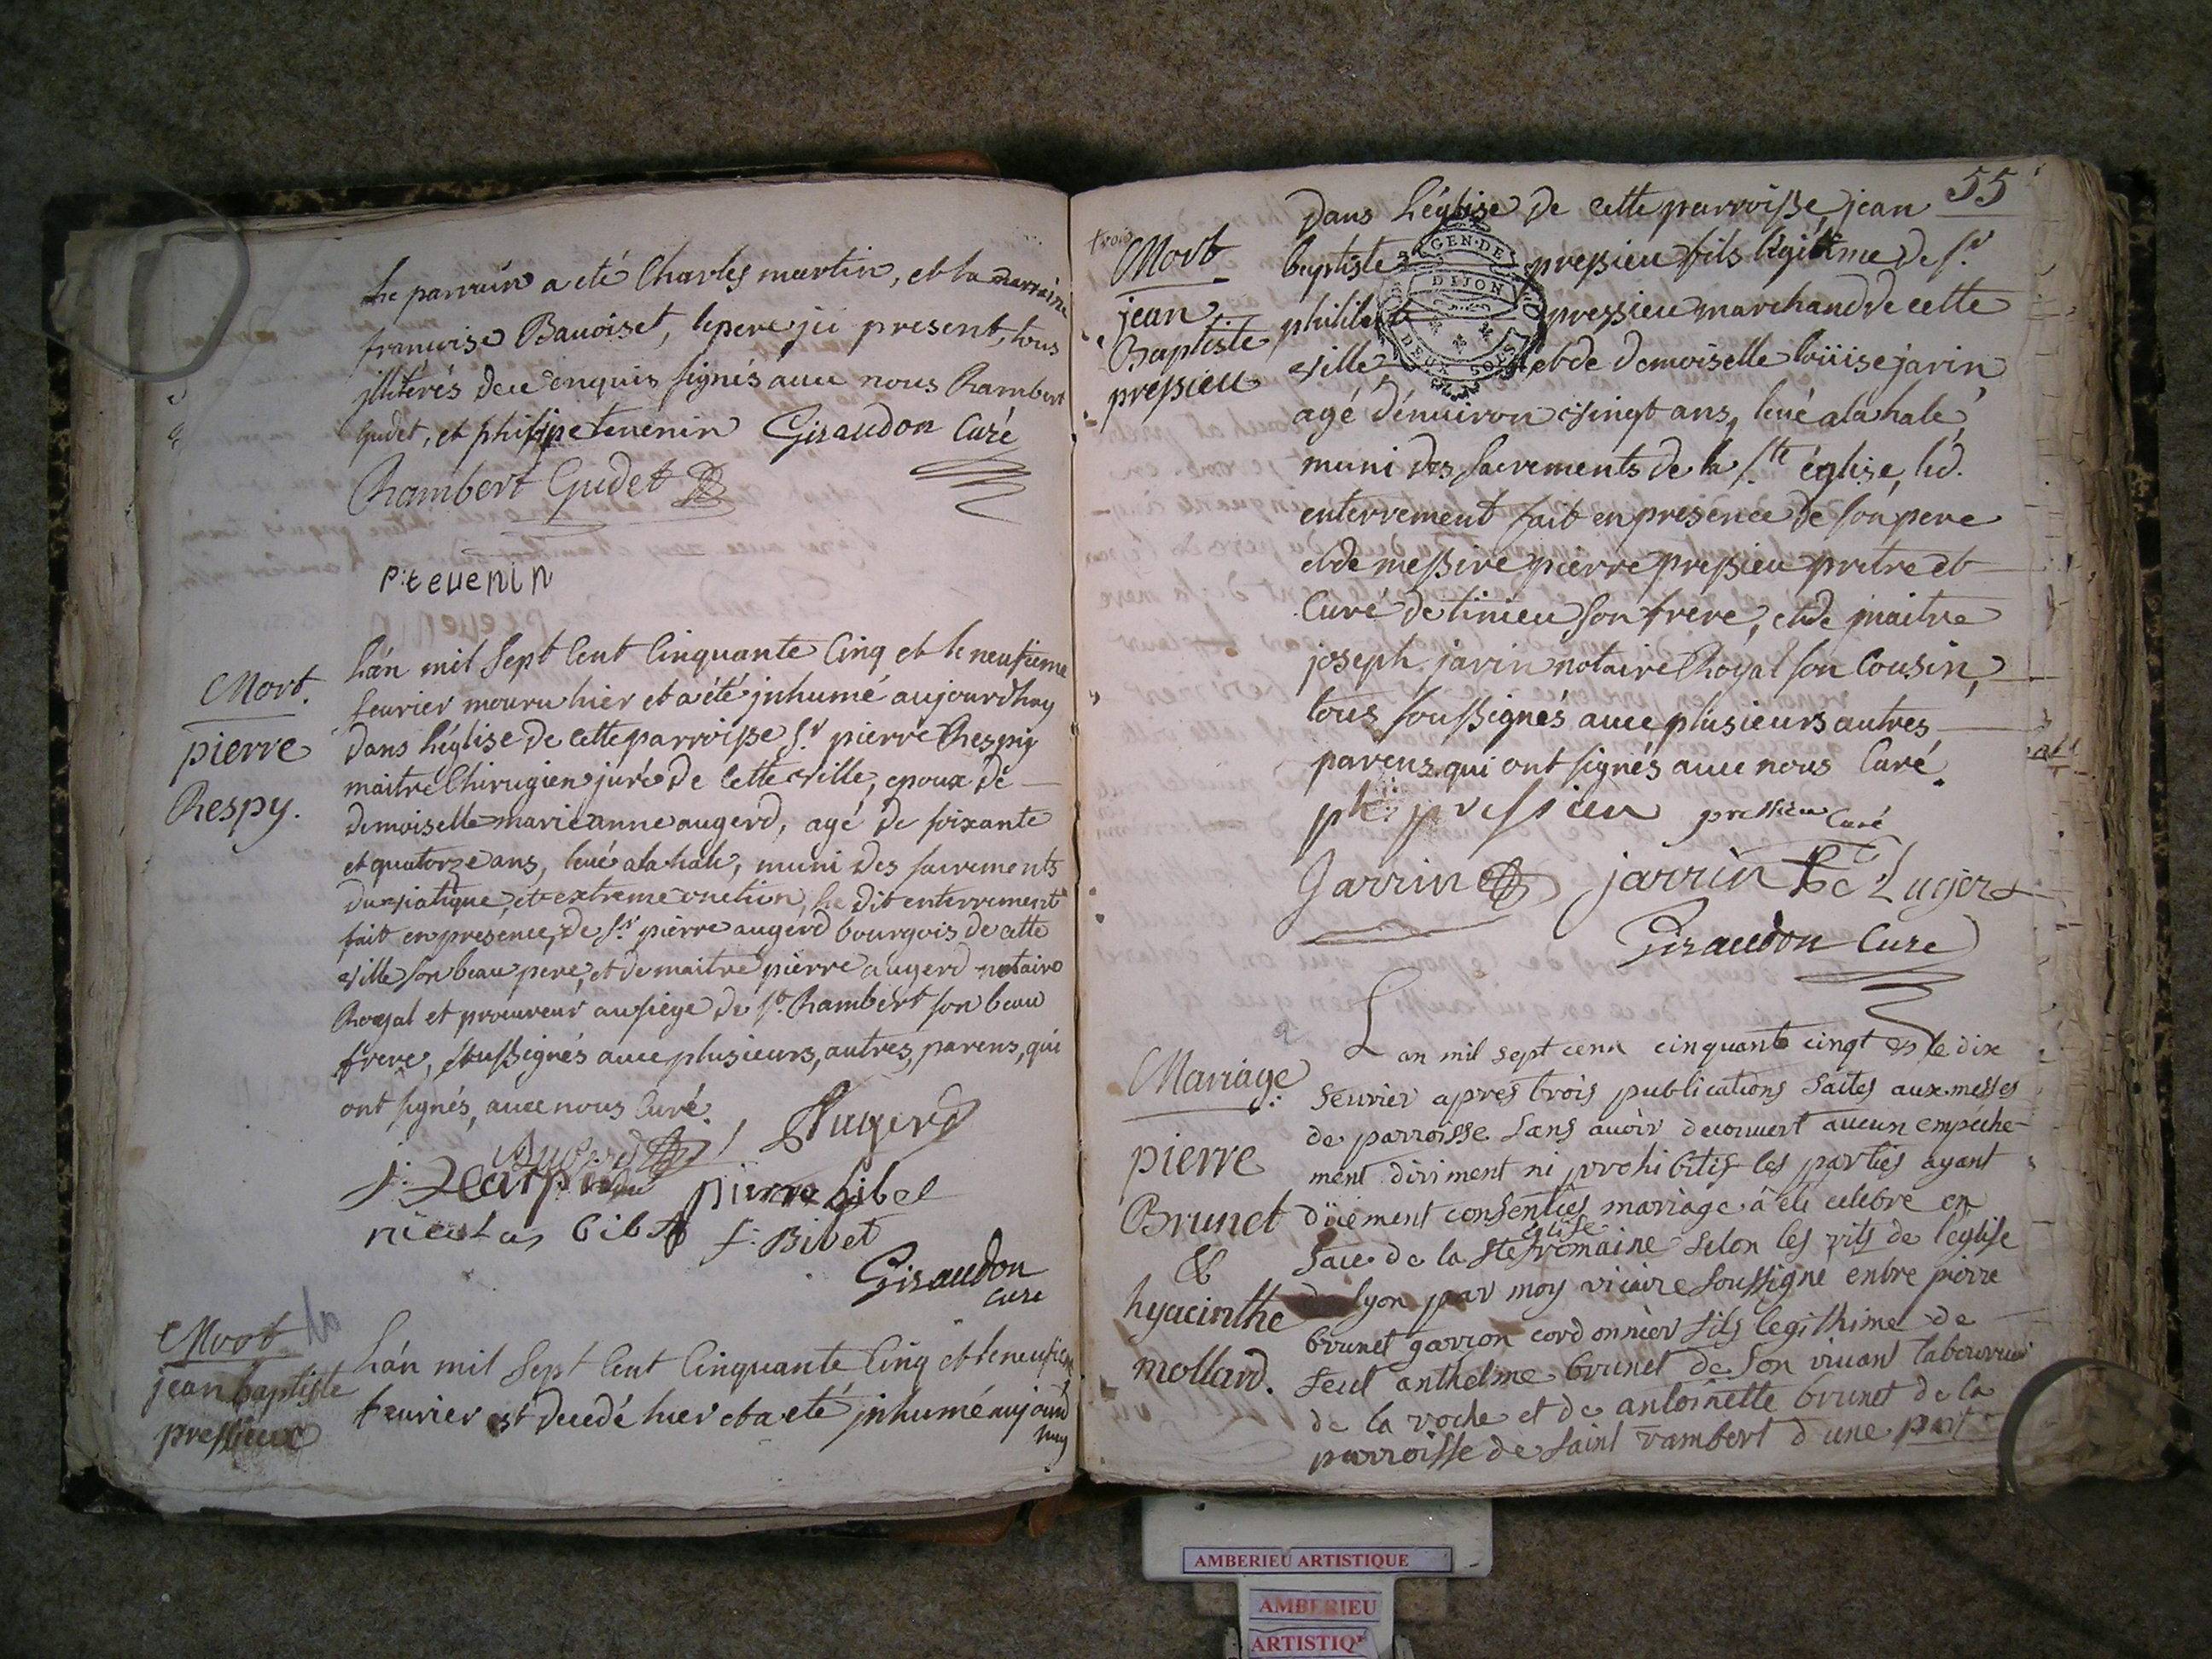 le parrain a eté Charles martin, et la marraine
francoise Bauoiset, le pere jci present, tous
jlliterés de ce enquis signés auec nous Rambert
Gudet, et philipe teuenin Giraudon Curé
Rambert Gudet
p: teuenin
Mort.
pierre
Respy.
L'an mil Sept Cent Cinquante Cinq et le neufieme
feurier mouru hier et a été jnhumé aujourdhuy
dans l'église de cette parroisse Sr pierre Respy
maitre Chirugien juré de Cette ville, epoux de
demoiselle marieanne augerd, agé de soixante
et quatorze ans, leué a la hale, muni des sacrements
du viatique, et extreme onction, le dit enterrement
fait en presence, de Sr pierre augerd bourgois de cette
ville son beau pere, et de maitre pierre augerd notaire
Royal et procureur au siege de St Rambert son beau
frere, soussignés auec plusieurs, autres, parens, qui
ont signés, auec nous Curé
Augerd
Augerd
pierre bibet
nicolas bibet f: Bibet
Giraudon
Cure
Mort
jean baptiste
pressieux
L'an mil Sept Cent Cinquante Cinq et le neufieme
feurier est decedé hier et a eté jnhumé aujourd
huy
55
trois
Mort
jean
Baptiste
pressieu
dans l'église de cette parroisse, jean
baptiste pressieu fils légitime de sr
philibert pressieu marchand de cette
ville et de demoiselle loüise jarin
agé dénuiron vingt ans, leué a la hale,
muni des sacrements de la Ste église, led.
enterrement fait en presence de son pere
et de messire pierre pressieu pretre et
Curé de linieu son frere, et de maitre
joseph jarin notaire Royal son Cousin,
tous soussignés auec plusieurs autres
parens qui ont signés auec nous Curé.
phi: pressieu pressieu Curé
Jarrin jarrin
Giraudon Cure
GEN. DE
DIJON
DEUX SOLS
Mariage
pierre
Brunet
&
hyacinthe
mollard.
L an mil sept cenn cinquante cinqt et le dix
feurier apres trois publications faites aux messes
de parroisse sans auoir decouuert aucun empéche-
ment diriment ni prohibitif les parties ayant
düement consenties mariage a été celebre en
face de la ste église romaine selon les rits de leglise
de lyon par moy vicaire soussigne entre pierre
brunet garcon cordonnier fils legithime de
feut anthelme brunet de son viuant laboureur
de la roche et de antoinette brunet de la
parroisse de saint rambert d une part
AMBERIEU ARTISTIQUE
AMBERIEU
ARTISTIQ